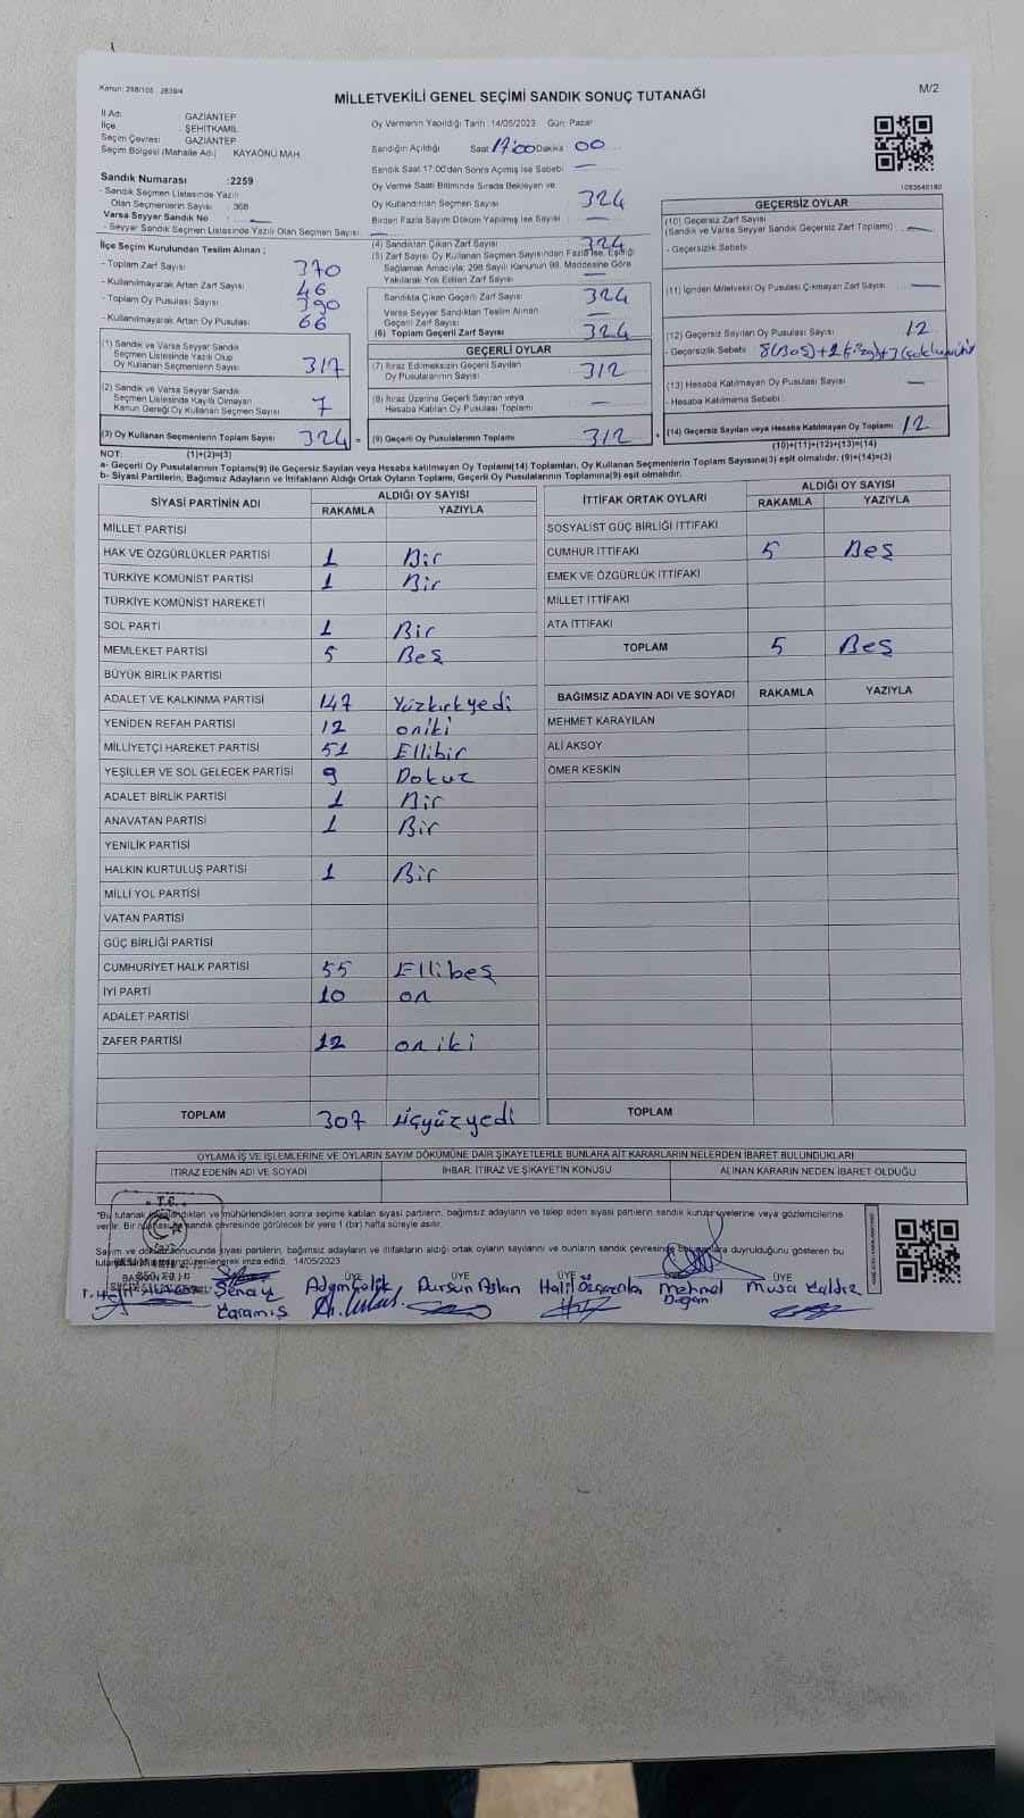 Kanun: 298/105 , 2839/4
MİLLETVEKİLİ GENEL SEÇİMİ SANDIK SONUÇ TUTANAĞI
M/2
İl Adı: GAZİANTEP
İlçe : ŞEHİTKAMİL
Seçim Çevresi: GAZİANTEP
Seçim Bölgesi (Mahalle Adı) KAYAÖNÜ MAH.
Oy Vermenin Yapıldığı Tarih : 14/05/2023 Gün: Pazar
Sandığın Açıldığı Saat 17:00 Dakika 00
Sandık Saat 17:00'den Sonra Açılmış İse Sebebi —
Oy Verme Saati Bitiminde Sırada Bekleyen ve
Oy Kullandırılan Seçmen Sayısı 324
Birden Fazla Sayım Döküm Yapılmış İse Sayısı —
1083640180
Sandık Numarası :2259
- Sandık Seçmen Listesinde Yazılı
Olan Seçmenlerin Sayısı : 368
Varsa Seyyar Sandık No —
- Seyyar Sandık Seçmen Listesinde Yazılı Olan Seçmen Sayısı —
İlçe Seçim Kurulundan Teslim Alınan ;
- Toplam Zarf Sayısı 370
- Kullanılmayarak Artan Zarf Sayısı 46
- Toplam Oy Pusulası Sayısı 390
- Kullanılmayarak Artan Oy Pusulası 66
(1) Sandık ve Varsa Seyyar Sandık
Seçmen Listesinde Yazılı Olup
Oy Kullanan Seçmenlerin Sayısı 317
(2) Sandık ve Varsa Seyyar Sandık
Seçmen Listesinde Kayıtlı Olmayan
Kanun Gereği Oy Kullanan Seçmen Sayısı 7
(3) Oy Kullanan Seçmenlerin Toplam Sayısı 324 =
(4) Sandıktan Çıkan Zarf Sayısı 324
(5) Zarf Sayısı Oy Kullanan Seçmen Sayısından Fazla İse, Eşitliği
Sağlamak Amacıyla, 298 Sayılı Kanunun 98. Maddesine Göre
Yakılarak Yok Edilen Zarf Sayısı —
Sandıkta Çıkan Geçerli Zarf Sayısı 324
Varsa Seyyar Sandıktan Teslim Alınan
Geçerli Zarf Sayısı —
(6) Toplam Geçerli Zarf Sayısı 324
GEÇERLİ OYLAR
(7) İtiraz Edilmeksizin Geçerli Sayılan
Oy Pusulalarının Sayısı 312
(8) İtiraz Üzerine Geçerli Sayılan veya
Hesaba Katılan Oy Pusulası Toplamı —
(9) Geçerli Oy Pusulalarının Toplamı 312 +
GEÇERSİZ OYLAR
(10) Geçersiz Zarf Sayısı
(Sandık ve Varsa Seyyar Sandık Geçersiz Zarf Toplamı) —
- Geçersizlik Sebebi
(11) İçinden Milletvekili Oy Pusulası Çıkmayan Zarf Sayısı —
(12) Geçersiz Sayılan Oy Pusulası Sayısı 12
- Geçersizlik Sebebi 8(Boş)+
(13) Hesaba Katılmayan Oy Pusulası Sayısı —
- Hesaba Katılmama Sebebi
(14) Geçersiz Sayılan veya Hesaba Katılmayan Oy Toplamı 12
NOT: (1)+(2)=(3)
(10)+(11)+(12)+(13)=(14)
a- Geçerli Oy Pusulalarının Toplamı(9) ile Geçersiz Sayılan veya Hesaba katılmayan Oy Toplamı(14) Toplamları, Oy Kullanan Seçmenlerin Toplam Sayısına(3) eşit olmalıdır. (9)+(14)=(3)
b- Siyasi Partilerin, Bağımsız Adayların ve İttifakların Aldığı Ortak Oyların Toplamı, Geçerli Oy Pusulalarının Toplamına(9) eşit olmalıdır.
SİYASİ PARTİNİN ADI ALDIĞI OY SAYISI
RAKAMLA YAZIYLA
MİLLET PARTİSİ
HAK VE ÖZGÜRLÜKLER PARTİSİ 1 Bir
TÜRKİYE KOMÜNİST PARTİSİ 1 Bir
TÜRKİYE KOMÜNİST HAREKETİ
SOL PARTİ 1 Bir
MEMLEKET PARTİSİ 5 Beş
BÜYÜK BİRLİK PARTİSİ
ADALET VE KALKINMA PARTİSİ 147 Yüzkırkyedi
YENİDEN REFAH PARTİSİ 12 oniki
MİLLİYETÇİ HAREKET PARTİSİ 51 Ellibir
YEŞİLLER VE SOL GELECEK PARTİSİ 9 Dokuz
ADALET BİRLİK PARTİSİ 1 Bir
ANAVATAN PARTİSİ 1 Bir
YENİLİK PARTİSİ
HALKIN KURTULUŞ PARTİSİ 1 Bir
MİLLİ YOL PARTİSİ
VATAN PARTİSİ
GÜÇ BİRLİĞİ PARTİSİ
CUMHURİYET HALK PARTİSİ 55 Ellibeş
İYİ PARTİ 10 on
ADALET PARTİSİ
ZAFER PARTİSİ 12 oniki
TOPLAM 307 üçyüzyedi
İTTİFAK ORTAK OYLARI ALDIĞI OY SAYISI
RAKAMLA YAZIYLA
SOSYALİST GÜÇ BİRLİĞİ İTTİFAKI
CUMHUR İTTİFAKI 5 Beş
EMEK VE ÖZGÜRLÜK İTTİFAKI
MİLLET İTTİFAKI
ATA İTTİFAKI
TOPLAM 5 Beş
BAĞIMSIZ ADAYIN ADI VE SOYADI RAKAMLA YAZIYLA
MEHMET KARAYILAN
ALİ AKSOY
ÖMER KESKİN
TOPLAM
OYLAMA İŞ VE İŞLEMLERİNE VE OYLARIN SAYIM DÖKÜMÜNE DAİR ŞİKAYETLERLE BUNLARA AİT KARARLARIN NELERDEN İBARET BULUNDUKLARI
İTİRAZ EDENİN ADI VE SOYADI İHBAR, İTİRAZ VE ŞİKAYETİN KONUSU ALINAN KARARIN NEDEN İBARET OLDUĞU
T.C.
"Bu tutanak ve mühürlendikten sonra seçime katılan siyasi partilerin, bağımsız adayların ve talep eden siyasi partilerin sandık kurulu üyelerine veya gözlemcilerine
verilir. Bir sandık çevresinde görülecek bir yere 1 (bir) hafta süreyle asılır.
Sayım ve döküm sonucunda siyasi partilerin, bağımsız adayların ve ittifakların aldığı ortak oyların sayılarını ve bunların sandık çevresinde duyurulduğunu gösteren bu
tutanak düzenlenerek imza edildi. 14/05/2023
BAŞKAN ÜYE ÜYE ÜYE ÜYE
Şenay Karamış Dursun Aslan Halil Mehmet Doğan Musa Yıldız